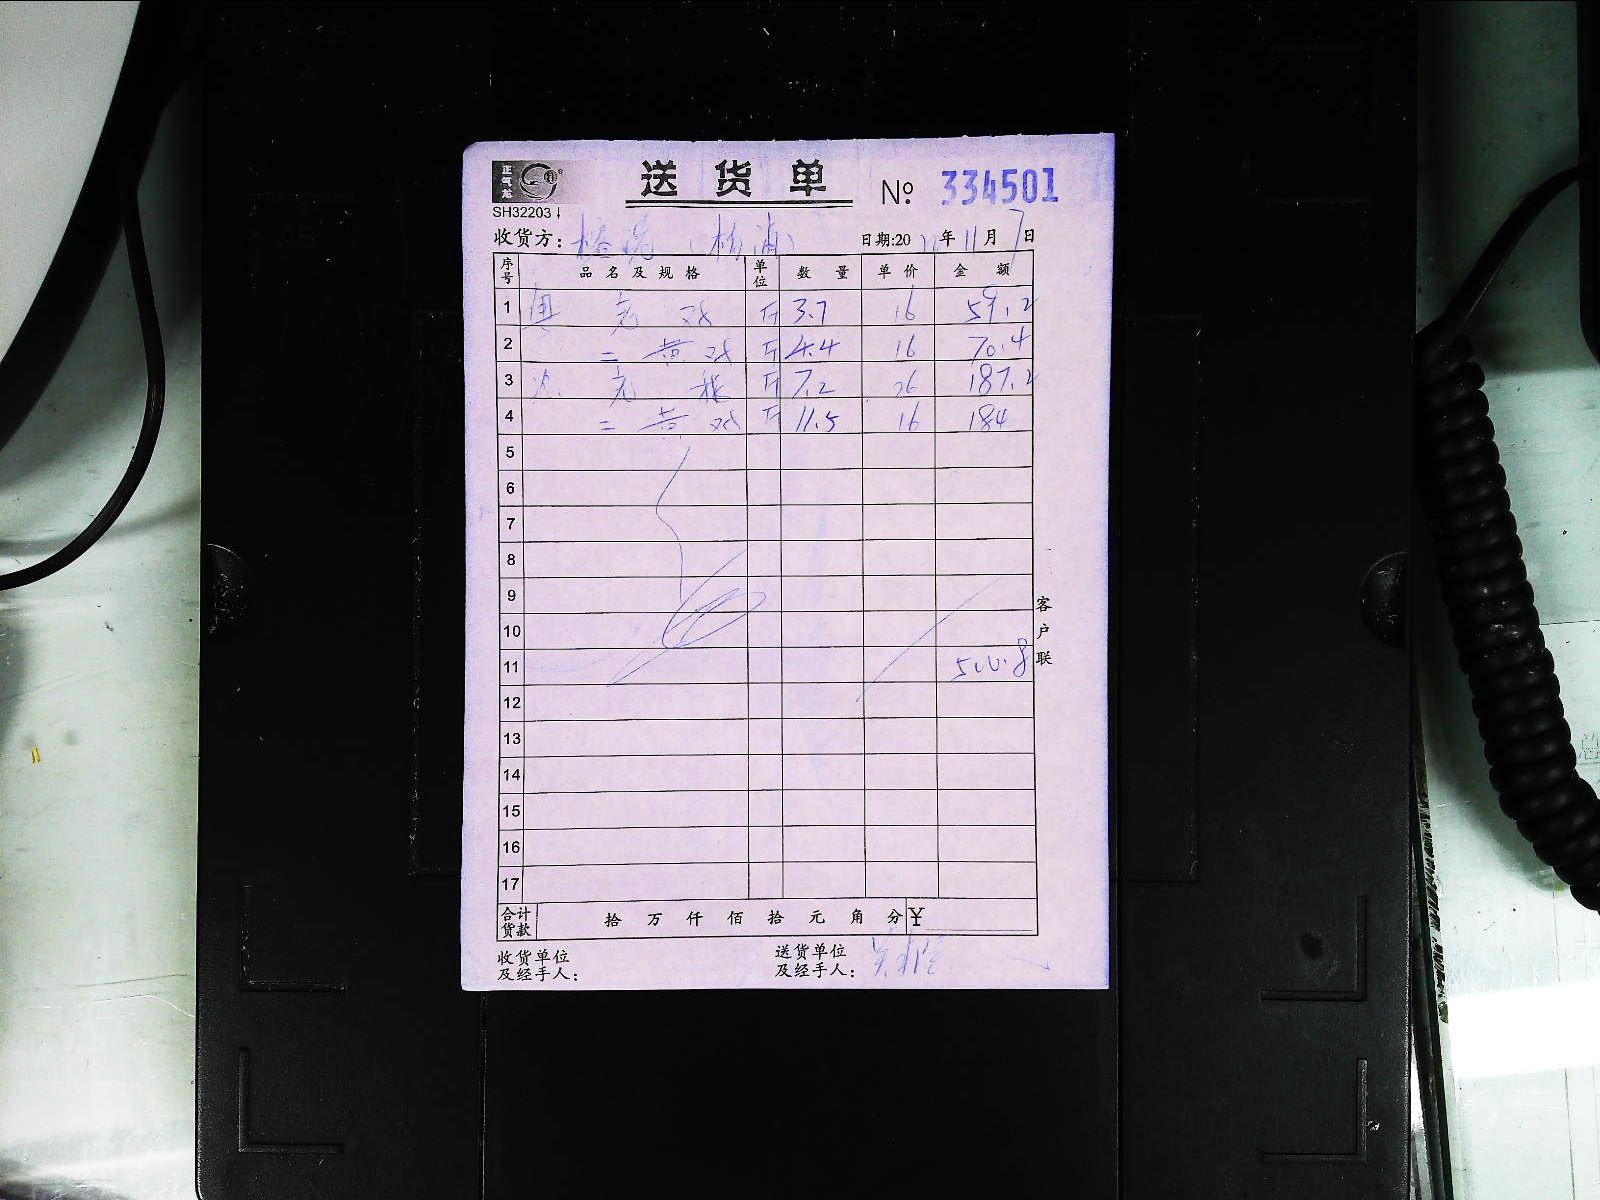 正气龙
送货单 № 334501
SH32203
收货方: (杨浦) 日期:20 年11月7日
序号 品名及规格 单位 数量 单价 金额
1 斤 3.7 16 59.2
2 = 黄 斤 4.4 16 70.4
3 斤 7.2 26 187.2
4 = 黄 斤 11.5 16 184
5
6
7
8
9
10
11 500.8
12
13
14
15
16
17
客户联
合计货款 拾万仟佰拾元角分 ¥
收货单位 送货单位
及经手人: 及经手人: